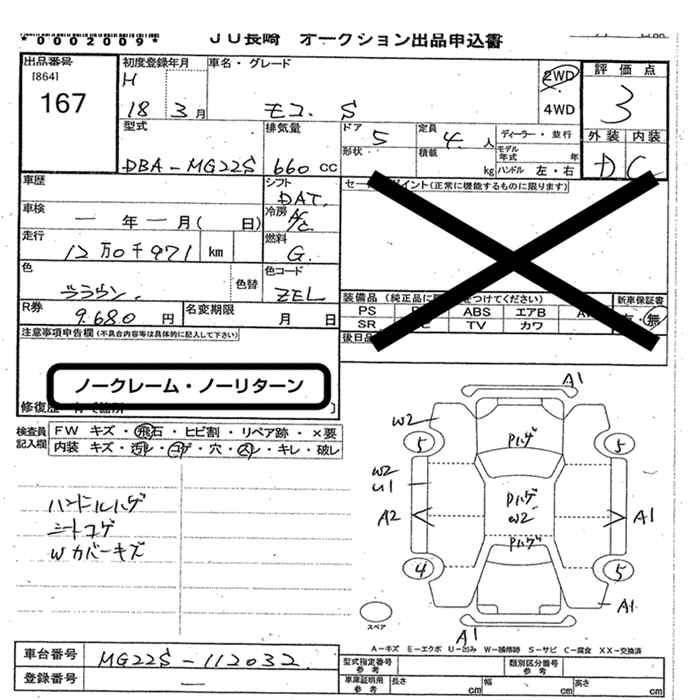 *0002009*
JU長崎 オークション出品申込書
出品番号
[864]
167
初度登録年月
H
18 3月
車名・グレード
モコ. S
2WD
4WD
評価点
3
外装 内装
D C
型式
DBA-MG22S
排気量
660 CC
ドア
5
形状
定員
4人
積載
kg
ディーラー・並行
モデル年式 年
ハンドル 左・右
車歴
シフト
DAT.
セールスポイント(正常に機能するものに限ります)
車検
ー年ー月( 日)
冷房
A/C
走行
12万0千971 km
燃料
G.
色
ブラウン.
色替
色コード
ZEL
装備品
PS
ABS
エアB
SR
TV
カワ
新車保証書
有・無
R券
9.680円
名変期限
月 日
後日品
注意事項申告欄(不具合内容等は具体的に記入して下さい)
ノークレーム・ノーリターン
修復歴
検査員記入欄
FW キズ・飛石・ヒビ割・リペア跡・×要
内装 キズ・汚レ・コゲ・穴・スレ・キレ・破レ
ハンドルハゲ
シートコゲ
Wカバーキズ
A1
W2
5
5
Pハゲ
W2
U1
Pハゲ
W2
A2
A1
Pハゲ
4
5
A1
A1
スペア
A-キズ E-エクボ U-凹み W-補修跡 S-サビ C-腐食 XX-交換済
車台番号
MG22S-112032
登録番号
型式指定番号
参考
類別区分番号
参考
車庫証明用
参考
長さ cm
幅 cm
高さ cm